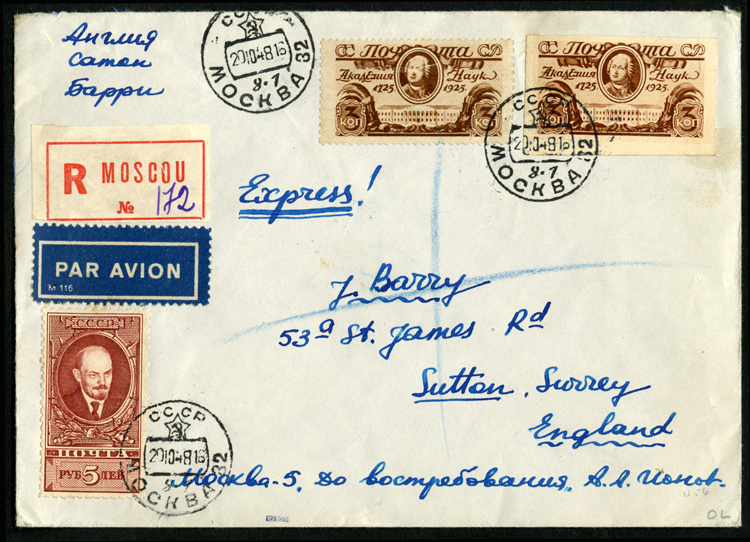 Англия
Сатон
Барри
R MOSCOU
№ 172
PAR AVION
M 116
Express!
J. Barry
53a St. James Rd
Sutton, Surrey
England
Москва-5, До востребования, А.Л. Ионов.
СССР
20.10.48.16
МОСКВА 32
ПОЧТА СССР
Академия Наук
1725 1925
3 КОП 3 КОП
ПОЧТА СССР
Академия Наук
1725 1925
3 КОП 3 КОП
СССР
20.10.48.16
МОСКВА 32
СССР
ПОЧТА
РУБ 5 ЛЕЙ
СССР
20.10.48.16
МОСКВА 32
OL